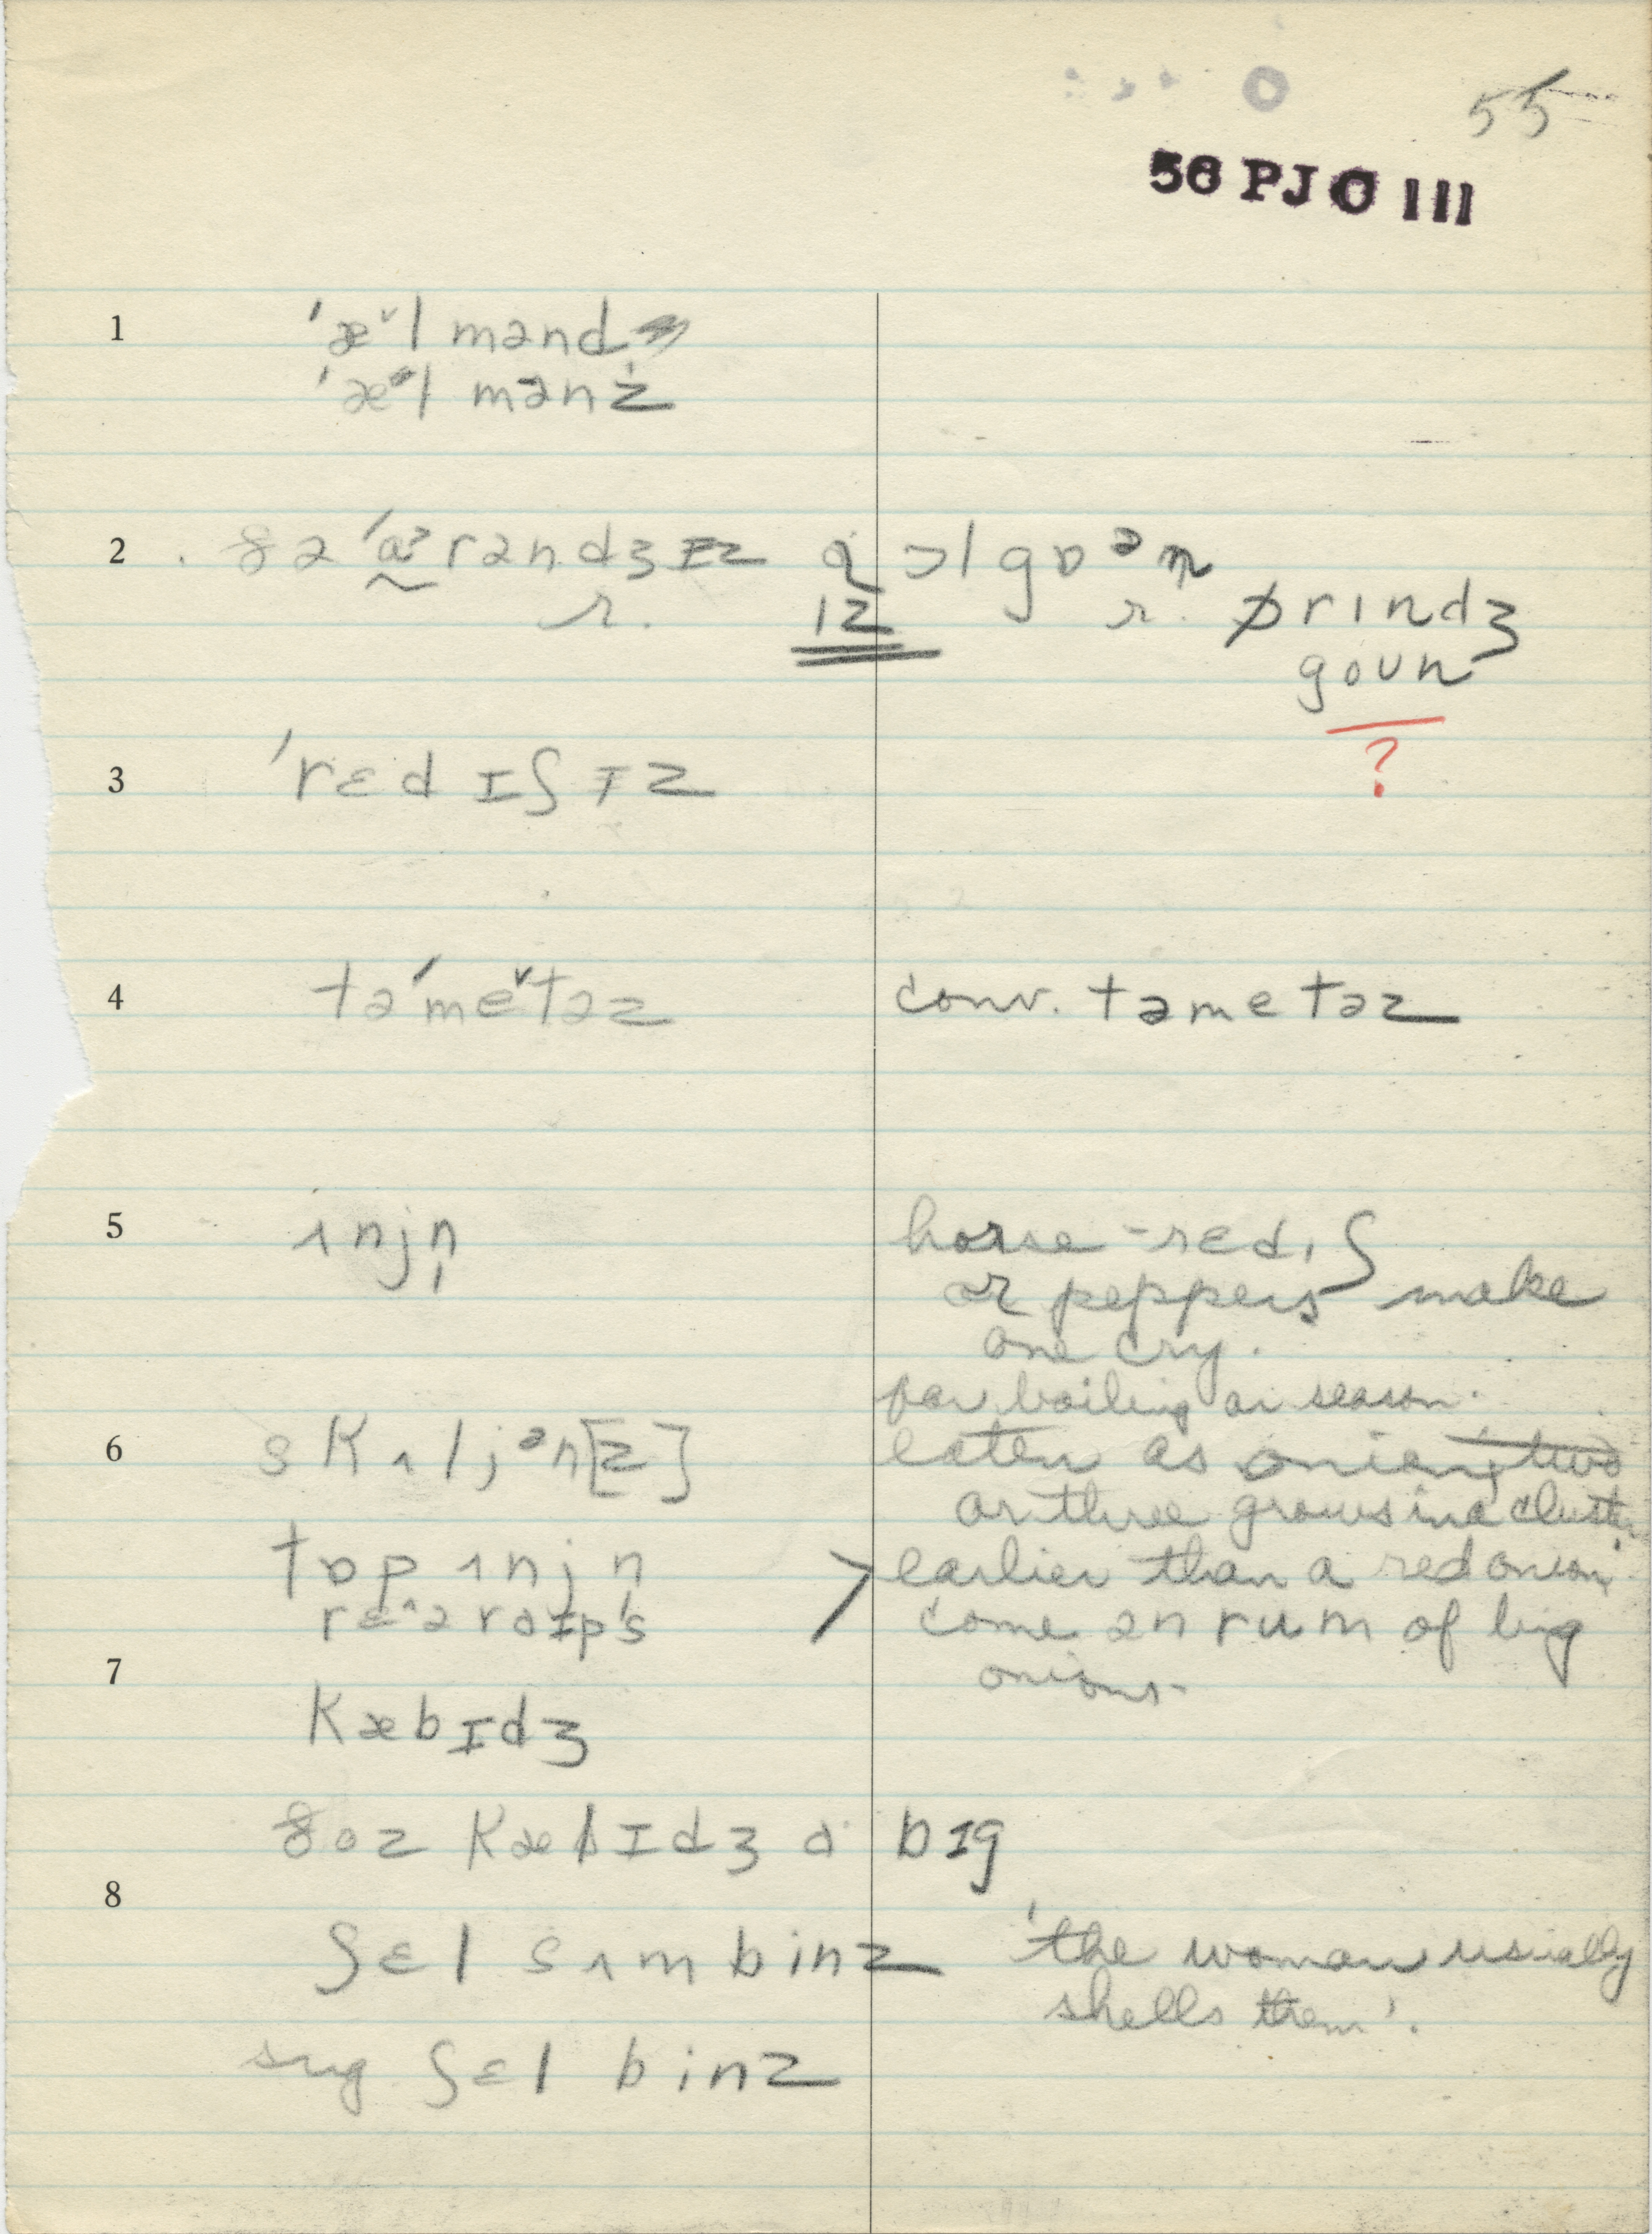 55
56 PJO III
1 ˈæ˅l mənd
ˈæl mənz
2 ðə ˈɑ˃rəndʒɪz ɑ ɔl goᵊn
r. ɪz r. ɒrɪndʒ
goun
?
3 ˈrɛdɪʃɪz
4 təˈme˅təz conv. təmetəz
5 ʌnjn̩ horse-rɛdɪʃ
or peppers make
one cry.
for boiling or season.
6 skʌljᵊn[z] eaten as onion, two
or three grows in a cluster
tɒp ʌnjn̩ > earlier than a red onion
come ən rum of big
onions-
7
kæbɪdʒ
ðoz kæbɪdʒ ɑ bɪg
8
ʃɛl sʌm binz 'the woman usually
shells them'.
sug ʃɛl binz